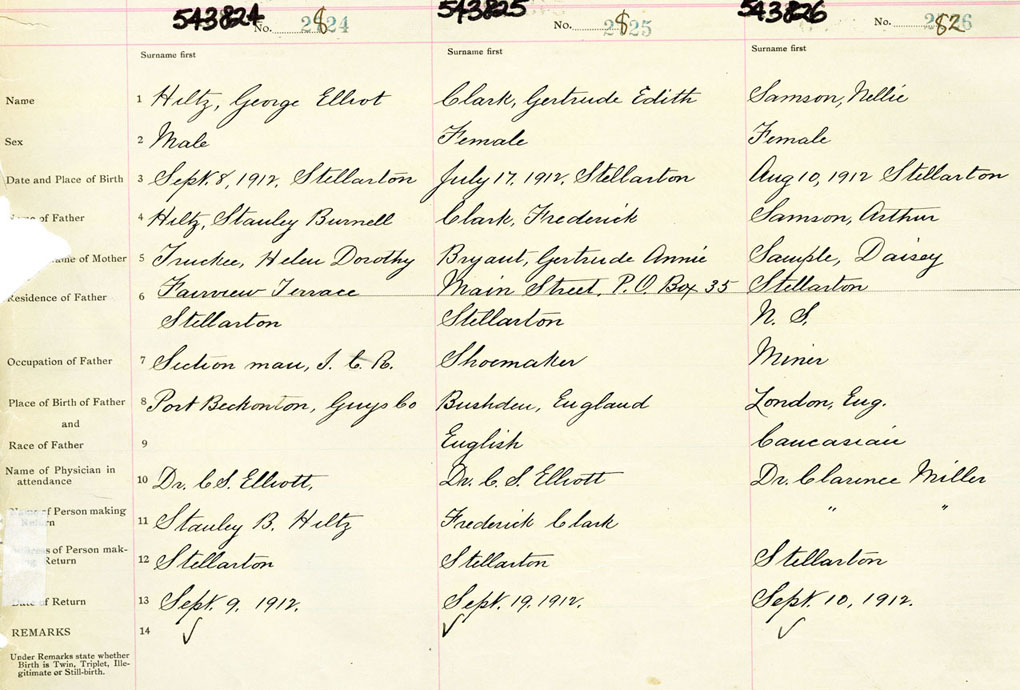 543824 543825 543826
No. 2824 No. 2825 No. 2826
Surname first Surname first Surname first
Name 1 Hiltz, George Elliot Clark, Gertrude Edith Samson, Nellie
Sex 2 Male Female Female
Date and Place of Birth 3 Sept. 8, 1912, Stellarton July 17, 1912, Stellarton Aug 10, 1912 Stellarton
of Father 4 Hiltz, Stanley Burnell Clark, Frederick Samson, Arthur
Name of Mother 5 Helen Dorothy Bryant, Gertrude Annie Sample, Daisey
Residence of Father 6 Fairview Terrace Main Street, P.O. Box 35 Stellarton
Stellarton Stellarton N. S.
Occupation of Father 7 Section man, I. C. R. Shoemaker Miner
Place of Birth of Father 8 Port Beckonton, Guys Co England London, Eng.
and
Race of Father 9 English Caucasian
Name of Physician in
attendance 10 Dr. C S. Elliott, Dr. C. S Elliott Dr. Clarence Miller
Name of Person making
Return 11 Stanley B. Hiltz Frederick Clark " "
Address of Person mak-
ing Return 12 Stellarton Stellarton Stellarton
Date of Return 13 Sept. 9, 1912. Sept. 19, 1912. Sept. 10, 1912.
REMARKS 14 ✓ ✓ ✓
Under Remarks state whether
Birth is Twin, Triplet, Ille-
gitimate or Still-birth.